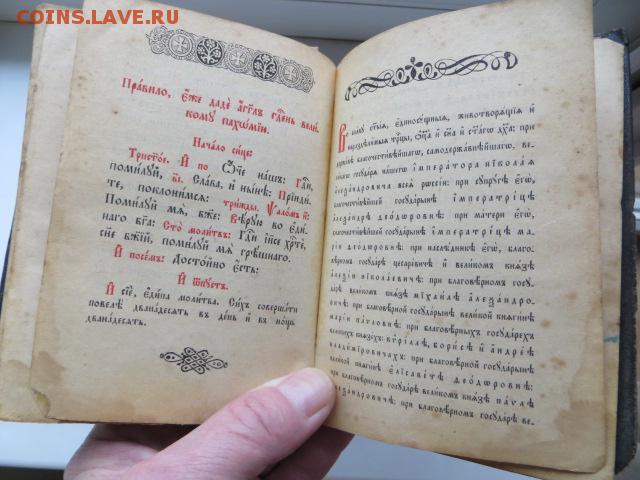 COINS.LAVE.RU
Пра́вило, є҆́же дадѐ а҆́гг҃лъ гдⷭ҇ень вели́
кому пахѡ́мїю.
Нача́ло си́це:
Трист҃о́е. И҆ по Ѻ҆́ч҃е на́шъ: Гдⷭ҇и,
поми́луй, в҃і. Сла́ва, и҆ ны́нѣ: Прїиди́
те, поклони́мсѧ: три́жды. Ѱало́мъ н҃:
Поми́луй мѧ̀, бж҃е: Вѣ́рую во є҆ди́
наго бг҃а: Сто̀ моли́твъ: Гдⷭ҇и і҆и҃се хрⷭ҇тѐ,
сн҃е бж҃їй, поми́луй мѧ̀ грѣ́шнаго.
И҆ посе́мъ: Досто́йно є҆́сть:
И҆ ѿпу́стъ.
И҆ сїѐ, є҆ди́на моли́тва. Си́хъ соверша́ти
повелѣ̀ двана́десѧть въ де́нь и҆ въ но́щь
двана́десѧть.
Во сла́ву ст҃ы́ѧ, є҆диносꙋ́щныѧ, животворѧ́щїѧ и҆
нераздѣ́льныѧ трⷪ҇цы, ѻ҆ц҃а̀ и҆ сн҃а и҆ ст҃а́гѡ дх҃а: при
держа́вѣ благочести́вѣйшагѡ, самодержа́внѣйшагѡ,
вели́кагѡ госꙋдарѧ̀ на́шегѡ і҆мпера́тора нїкола́а
а҆леѯа́ндровича всеѧ̀ рѡссі́и: при сꙋпрꙋ́гѣ є҆гѡ̀,
благочести́вѣйшей госꙋда́рынѣ і҆мператри́цѣ
а҆леѯа́ндрѣ ѳео́дѡровнѣ: при ма́тери є҆гѡ̀,
благочести́вѣйшей госꙋда́рынѣ і҆мператри́цѣ
марі́и ѳео́дѡровнѣ: при наслѣ́дникѣ є҆гѡ̀, благо
вѣ́рномъ госꙋда́рѣ цесаре́вичѣ и҆ вели́комъ кнѧ́зѣ
а҆леѯі́и нїкола́евичѣ: при благовѣ́рномъ госꙋда́рѣ
вели́комъ кнѧ́зѣ мїхаи́лѣ а҆леѯа́ндро
вичѣ: при благовѣ́рной госꙋда́рынѣ вели́кой кнѧги́нѣ
марі́и па́vловнѣ: при благовѣ́рныхъ госꙋда́рехъ
вели́кихъ кнѧзѣ́хъ: кѷрі́ллѣ, бори́сѣ и҆ а҆ндре́ѣ
влади́мїровичахъ: при благовѣ́рной госꙋда́рынѣ
вели́кой кнѧги́нѣ є҆лїсаве́тѣ ѳео́дѡровнѣ:
при благовѣ́рномъ госꙋда́рѣ вели́комъ кнѧ́зѣ па́vлѣ
а҆леѯа́ндровичѣ: при благовѣ́рномъ госꙋда́рѣ ве